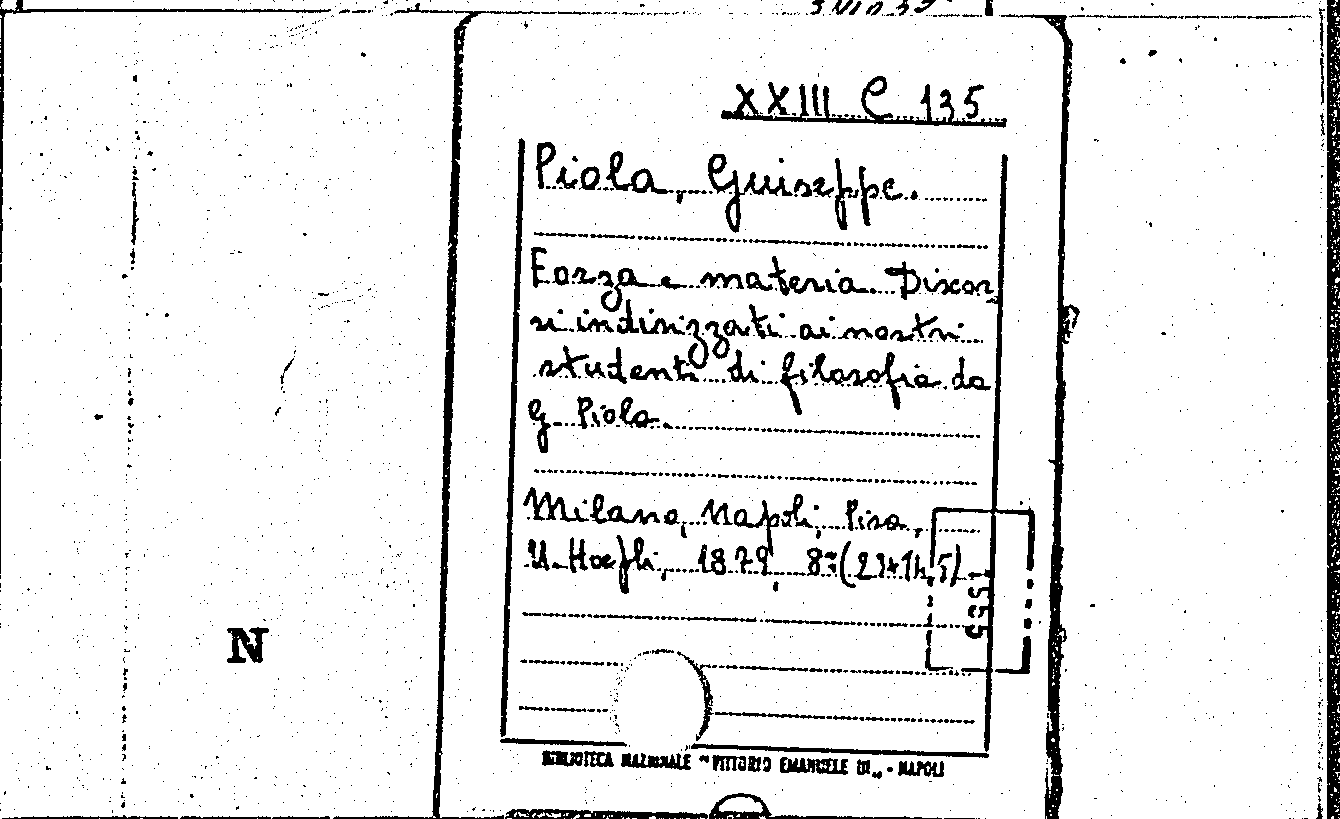 XXIII C 135
Piola, Guiseppe.
Forza e materia. Discor
si indirizzati ai nostri
studenti di filosofia da
G. Piola.
Milano, Napoli, Pisa,
U. Hoepli, 1879, 8°. (23×14,5)
1955
N
BIBLIOTECA NAZIONALE "VITTORIO EMANUELE III" - NAPOLI